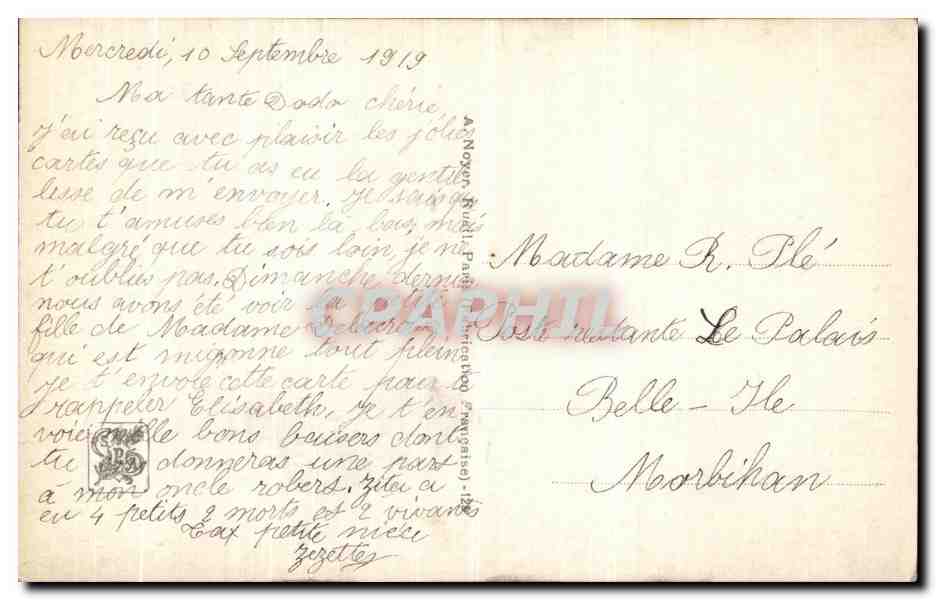 Mercredi, 10 Septembre 1919
Ma tante Dodo chérie
J'ai reçu avec plaisir les jolies
cartes que tu as eu la gentil
lesse de m'envoyer. Je sais que
tu t'amuses bien là bas, mais
malgré que tu sois loin je ne
t'oublies pas. Dimanche dernier
nous avons été voir la
fille de Madame
qui est mignonne tout plein
Je t'envoie cette carte pour te
rappeler Elisabeth, je t'en
voie mille bons baisers dont
tu donneras une part
à mon oncle robers. Zizi a
eu 4 petits 2 morts et 2 vivants
Tax petite niece
Zezettes
A. Noyer, Rueil, Paris (Fabrication Française) - 12
CPAPHIL
Madame R. Plé
Poste restante Le Palais
Belle - Ile
Morbihan